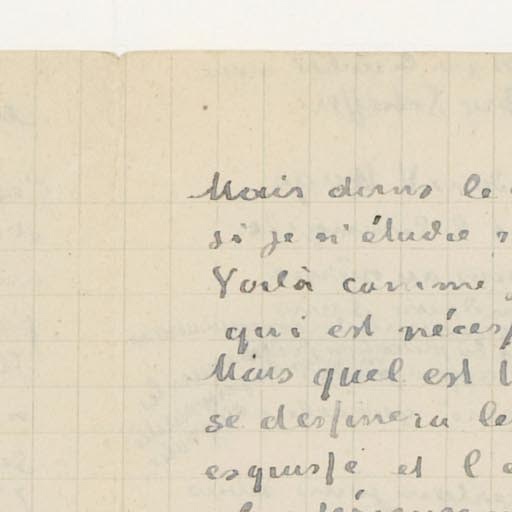 Mais dans le
si je n'étudie
Voilà comme
qui est néces
Mais quel est
se dessinera le
esquisse et l